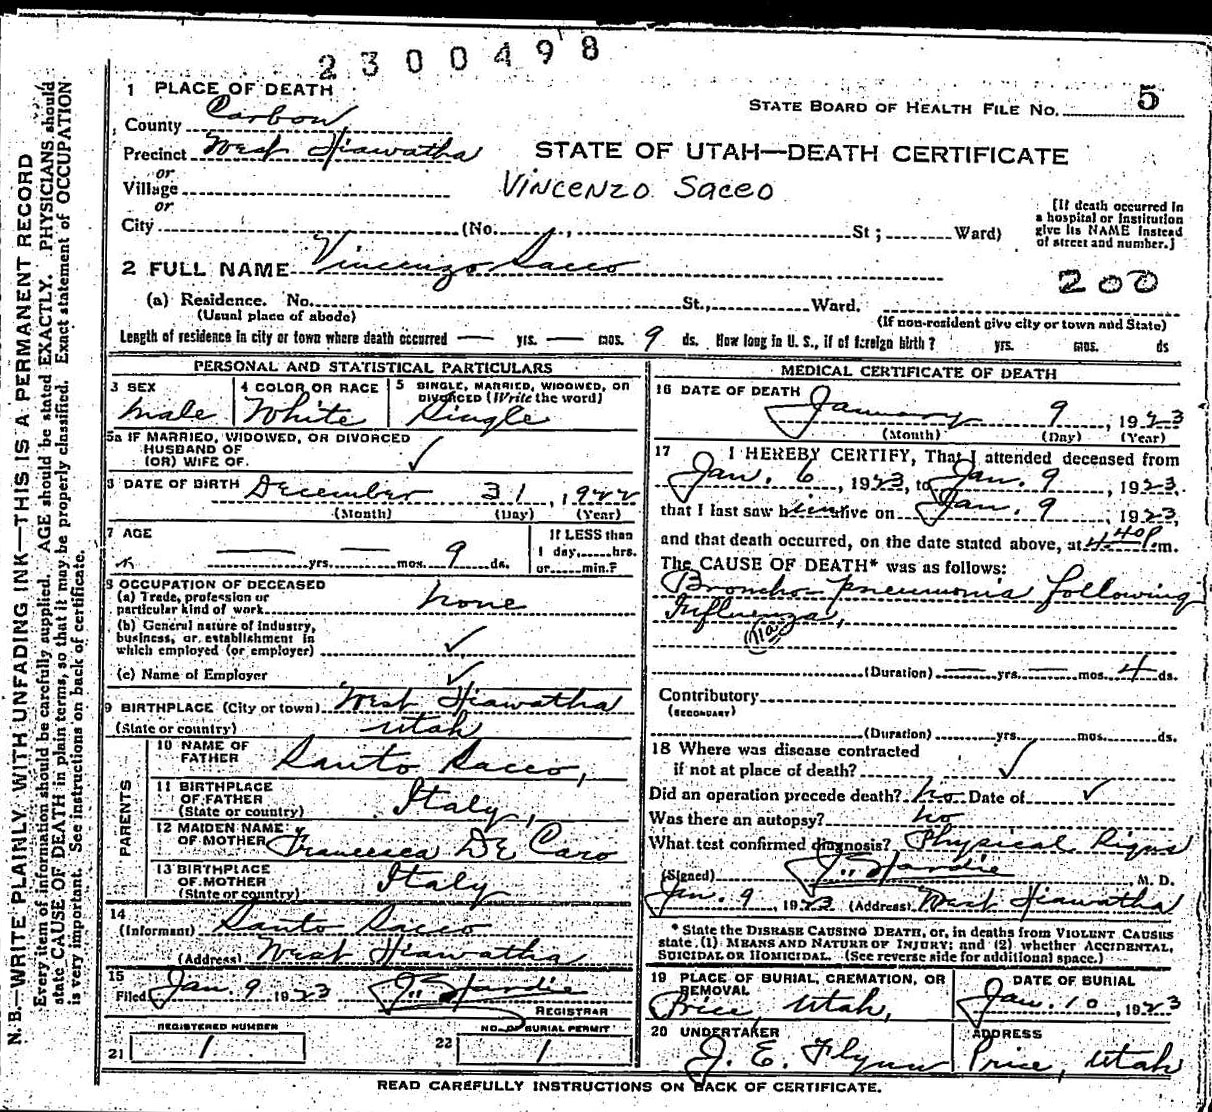 2300498
1 PLACE OF DEATH
STATE BOARD OF HEALTH FILE NO. 5
County Carbon
Precinct West Hiawatha
STATE OF UTAH—DEATH CERTIFICATE
or
Village
VINCENZO SACCO
or
City (No. , St ; Ward)
[If death occurred in
a hospital or institution
give its NAME instead
of street and number.]
2 FULL NAME Vincenzo Sacco
200
(a) Residence. No. St., Ward.
(Usual place of abode)
(If non-resident give city or town and State)
Length of residence in city or town where death occurred — yrs. — mos. 9 ds. How long in U. S., if of foreign birth? yrs. mos. ds
PERSONAL AND STATISTICAL PARTICULARS
3 SEX
male
4 COLOR OR RACE
White
5 SINGLE, MARRIED, WIDOWED, OR
DIVORCED (Write the word)
Single
5a IF MARRIED, WIDOWED, OR DIVORCED
HUSBAND OF
(OR) WIFE OF ✓
6 DATE OF BIRTH December 31, 1922
(Month) (Day) (Year)
7 AGE
— yrs. — mos. 9 ds.
If LESS than
1 day, hrs.
or min.?
8 OCCUPATION OF DECEASED
(a) Trade, profession or
particular kind of work none
(b) General nature of industry,
business, or establishment in
which employed (or employer) ✓
(c) Name of Employer ✓
9 BIRTHPLACE (City or town) West Hiawatha
(State or country) Utah
PARENTS
10 NAME OF
FATHER Santo Sacco,
11 BIRTHPLACE
OF FATHER
(State or country) Italy,
12 MAIDEN NAME
OF MOTHER Francesca De Caro
13 BIRTHPLACE
OF MOTHER
(State or country) Italy
14
(Informant) Santo Sacco
(Address) West Hiawatha
15
Filed Jan. 9 1923
REGISTRAR
REGISTERED NUMBER
21 1
NO. OF BURIAL PERMIT
22 1
MEDICAL CERTIFICATE OF DEATH
16 DATE OF DEATH
January 9, 1923
(Month) (Day) (Year)
17 I HEREBY CERTIFY, That I attended deceased from
Jan. 6, 1923, to Jan. 9, 1923.
that I last saw him alive on Jan. 9, 1923,
and that death occurred, on the date stated above, at 4 40 P.m.
The CAUSE OF DEATH* was as follows:
Broncho pneumonia following
Influenza,
11a
(Duration) — yrs. — mos. 4 ds.
Contributory
(SECONDARY)
(Duration) yrs. mos. ds.
18 Where was disease contracted
if not at place of death? ✓
Did an operation precede death? no Date of ✓
Was there an autopsy? no
What test confirmed diagnosis? Physical Signs
(Signed) M. D.
Jan. 9, 1923 (Address) West Hiawatha
* State the DISEASE CAUSING DEATH, or, in deaths from VIOLENT CAUSES
state (1) MEANS AND NATURE OF INJURY; and (2) whether ACCIDENTAL,
SUICIDAL OR HOMICIDAL. (See reverse side for additional space.)
19 PLACE OF BURIAL, CREMATION, OR
REMOVAL
Price, Utah,
DATE OF BURIAL
Jan. 10, 1923
20 UNDERTAKER
J. E. Flynn
ADDRESS
Price, Utah
READ CAREFULLY INSTRUCTIONS ON BACK OF CERTIFICATE.
N. B.—WRITE PLAINLY, WITH UNFADING INK—THIS IS A PERMANENT RECORD
Every item of information should be carefully supplied. AGE should be stated EXACTLY. PHYSICIANS should
state CAUSE OF DEATH in plain terms, so that it may be properly classified. Exact statement of OCCUPATION
is very important. See instructions on back of certificate.